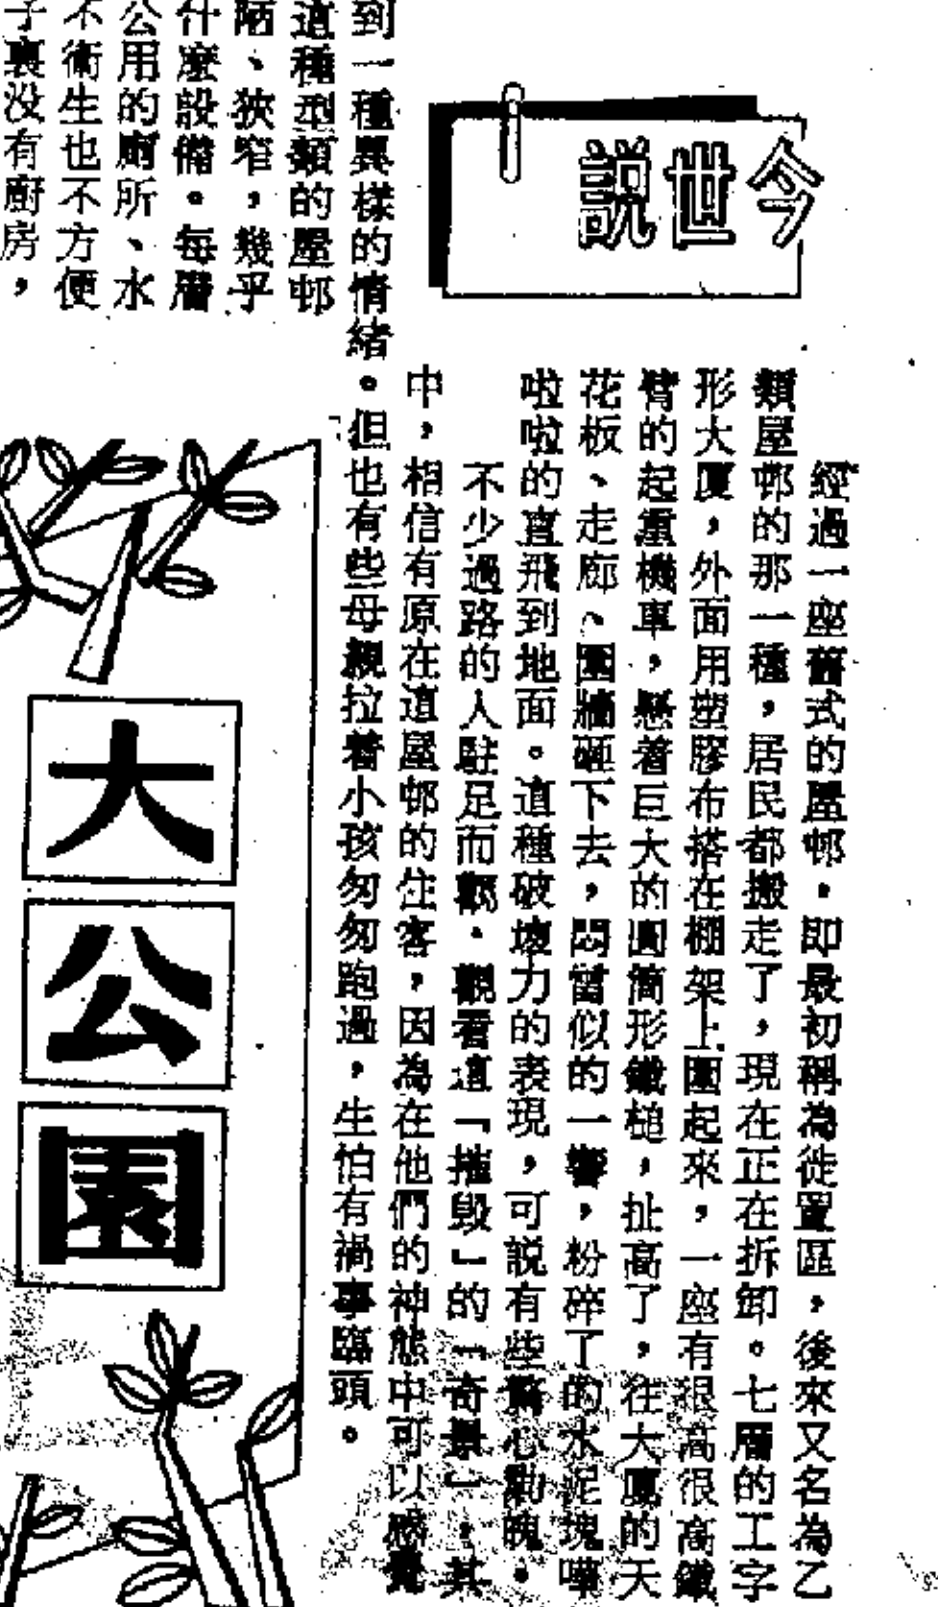 今世説
經過一座舊式的屋邨，即最初稱為徙置區，後來又名為乙
類屋邨的那一種，居民都搬走了，現在正在拆卸。七層的工字
形大厦，外面用塑膠布搭在棚架上圍起來，一座有很高很高鐵
臂的起重機車，懸着巨大的圓筒形鐵槌，扯高了，往大廈的天
花板、走廊、圍牆砸下去，悶雷似的一響，粉碎了的水泥塊嘩
啦啦的直飛到地面。這種破壞力的表現，可説有些驚心動魄。
不少過路的人駐足而觀，觀看這「摧毀」的「奇景」，其
中，相信有原在這屋邨的住客，因為在他們的神態中可以感覺
到一種異樣的情緒。但也有些母親拉着小孩匆匆跑過，生怕有禍事臨頭。
這種型類的屋邨
陋、狹窄，幾乎
什麼設備。每層
公用的廁所、水
不衛生也不方便
子裏没有廚房，
大公園